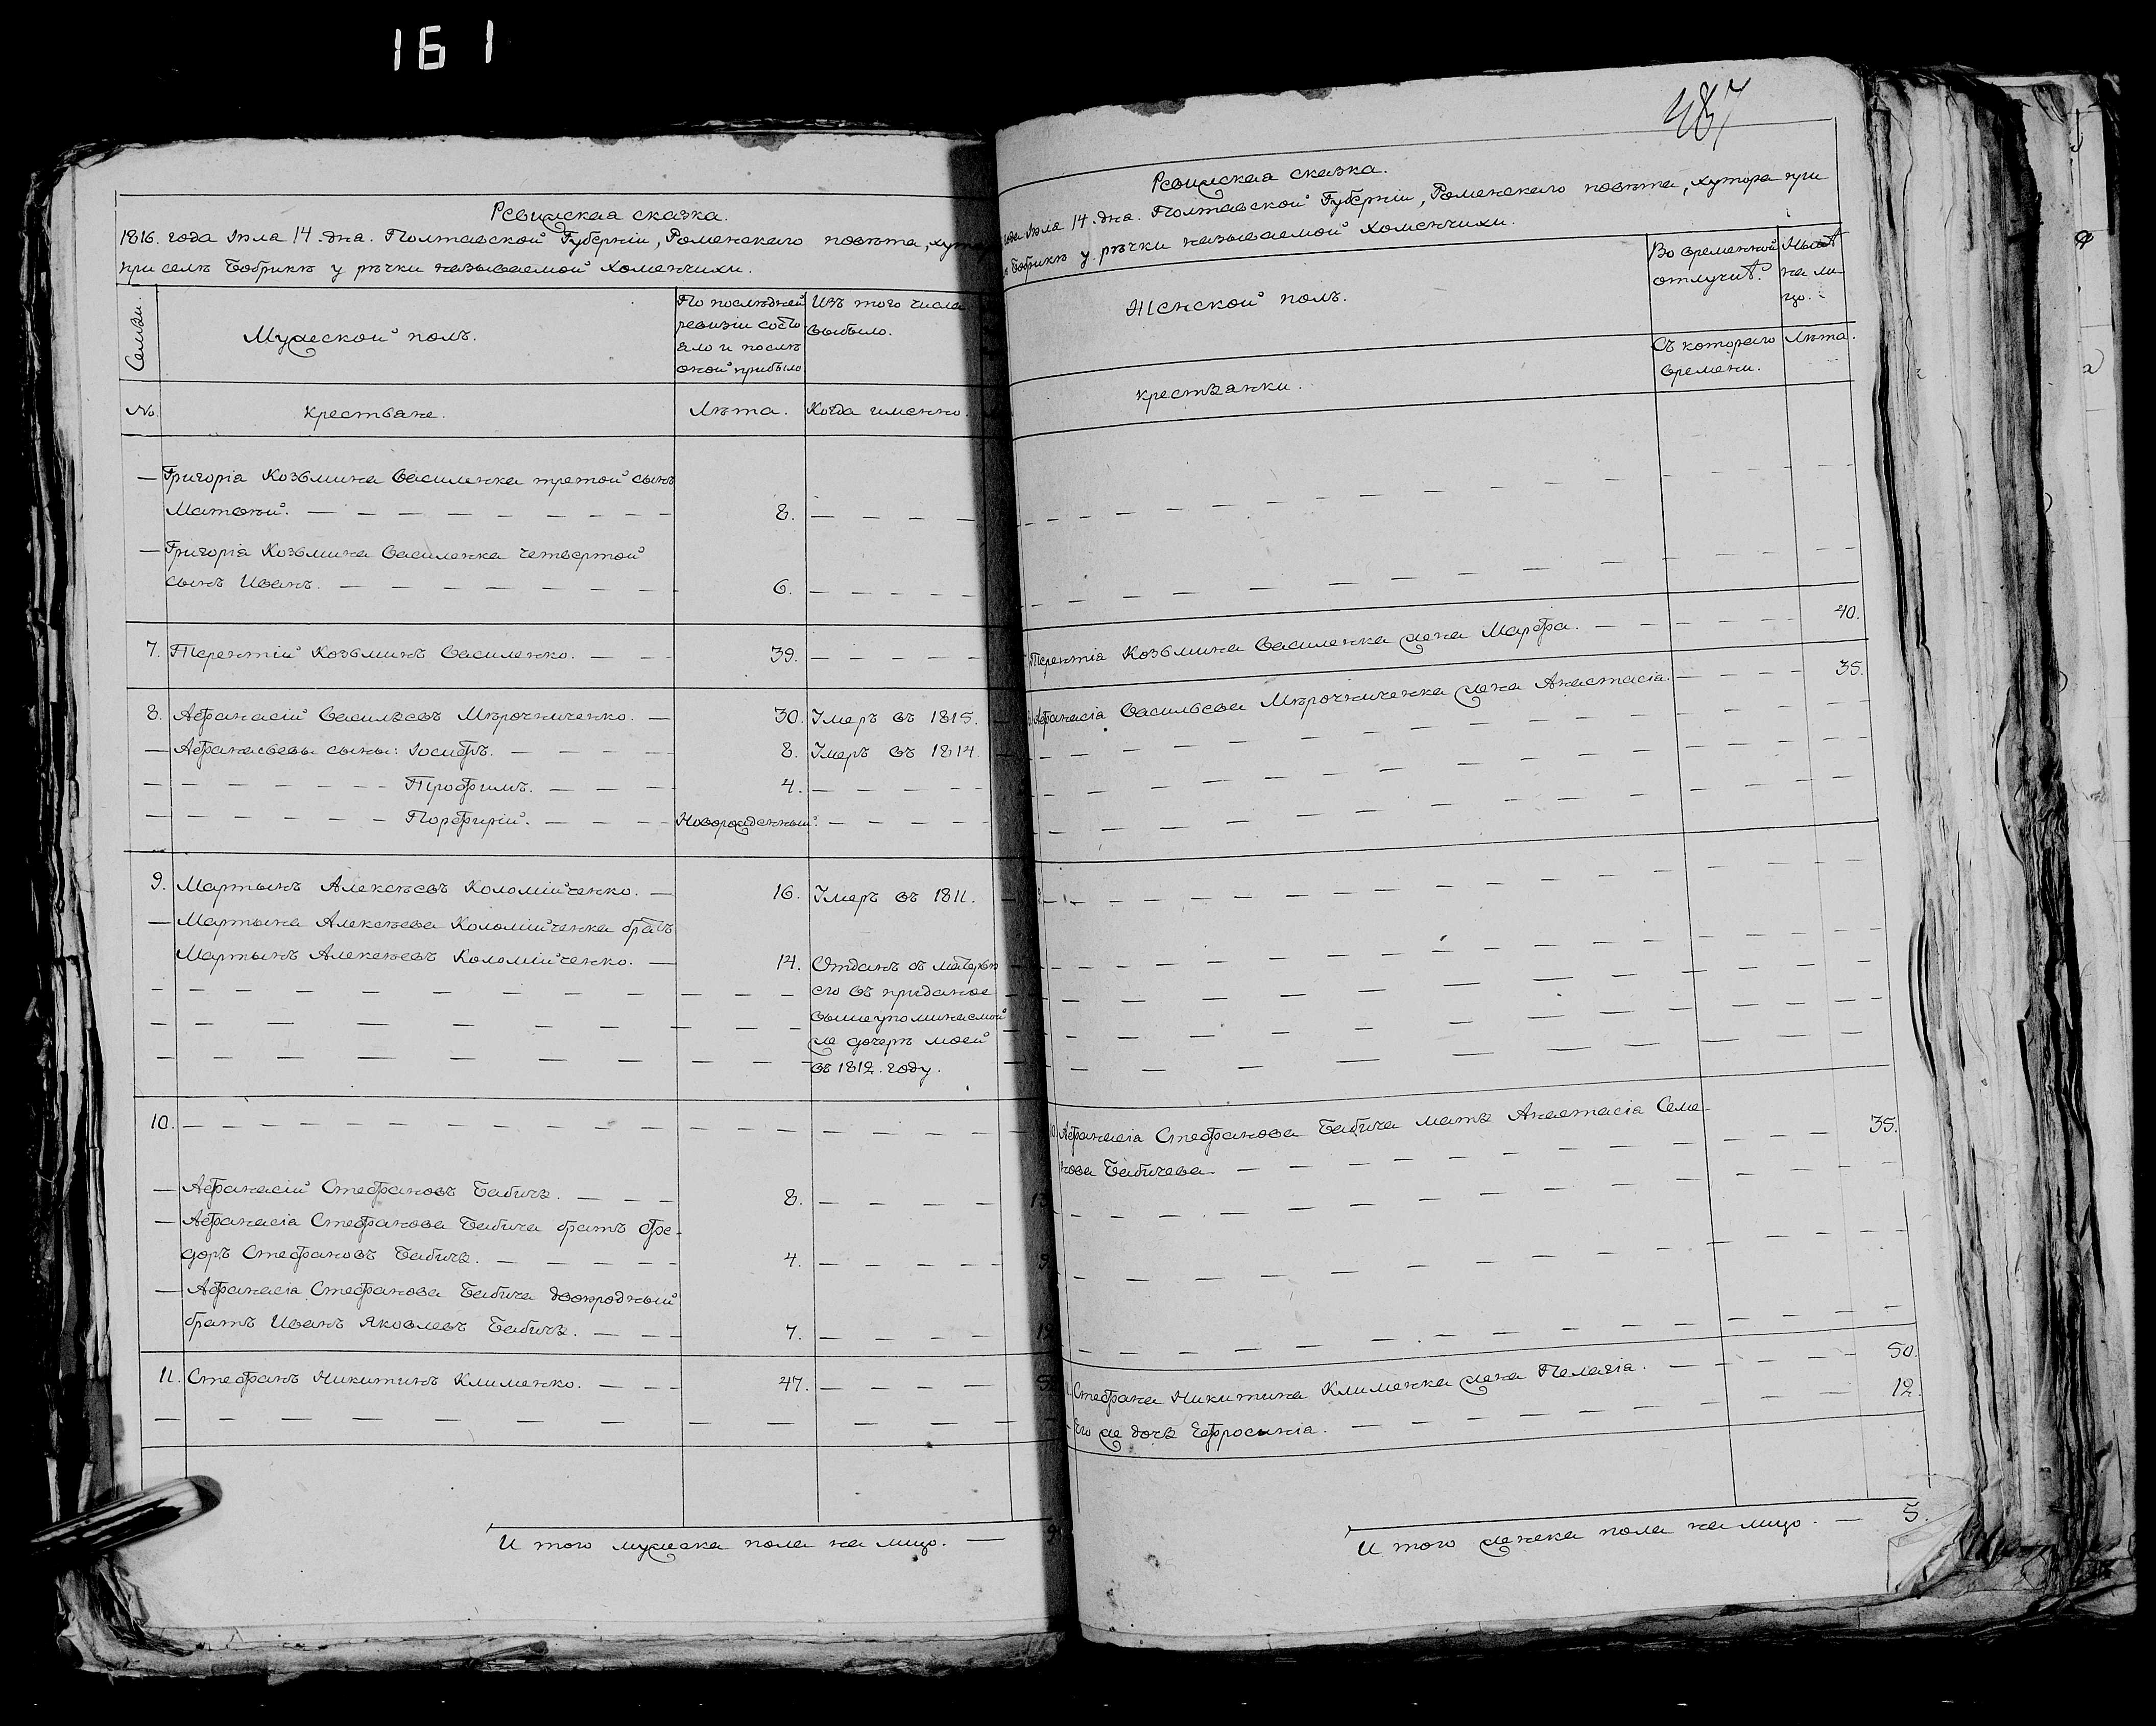 161
Ревижская сказка.
1816. года Іюля 14. дня. Полтавской Губерніи, Роменскаго повѣта, хутора
при селѣ Бобрикѣ у рѣчки называемой Хоменчихи.
Семьи.
Мужеской полъ.
По послѣдней
ревизіи состо
яло и послѣ
оной прибыло
Изъ того числа
выбыло.
№
крестьяне.
Лѣта.
Когда именно.
— Григорія Козьмина Василенка третой сынъ
Матвѣй. 8.
— Григорія Козьмина Василенка четвертой
сынъ Иванъ. 6.
7. Терентій Козьминъ Василенко. 39.
8. Афанасій Васильевъ Мѣрочниченко. — 30. Умеръ въ 1815.
— Афанасьевы сыны: Іосифъ. 8. Умеръ въ 1814.
Трофимъ. 4.
Порфирій. Новорожденный.
9. Мартынъ Алексѣевъ Коломійченко. — 16. Умеръ въ 1811.
— Мартына Алексѣева Коломійченка братъ
Мартынъ Алексѣевъ Коломійченко. — 14. Отданъ съ матерью
его въ приданое
вышеупоминаемой
же дочерѣ моей
въ 1812. году.
10.
— Афанасій Стефановъ Бабичь. 8. 13
— Афанасія Стефанова Бабича братъ Фе-
доръ Стефановъ Бабичь. 4. 9
— Афанасія Стефанова Бабича двоюродный
братъ Иванъ Яковлевъ Бабичь. 7. 12
11. Стефанъ Никитинъ Клименко. 47. 5
И того мужеска пола на лицо. — 9
487
Ревижская сказка.
года Іюля 14. дня. Полтавской Губерніи, Роменскаго повѣта, хутора при
Бобрикѣ у рѣчки называемой Хоменчихи.
Женской полъ.
Во временной
отлучкѣ.
Нынѣ
на ли-
цо.
Съ котораго
времени.
Лѣта.
крестьянки.
Терентія Козьмина Василенка жена Марфа. 40.
Афанасія Васильева Мѣрочниченка жена Анастасія. 35.
10. Афанасія Стефанова Бабича мать Анастасія Семе-
нова Бабичева. 35.
Стефана Никитина Клименка жена Пелагія. 50.
Его же дочь Ефросинія. 12.
И того женска пола на лицо. — 5.